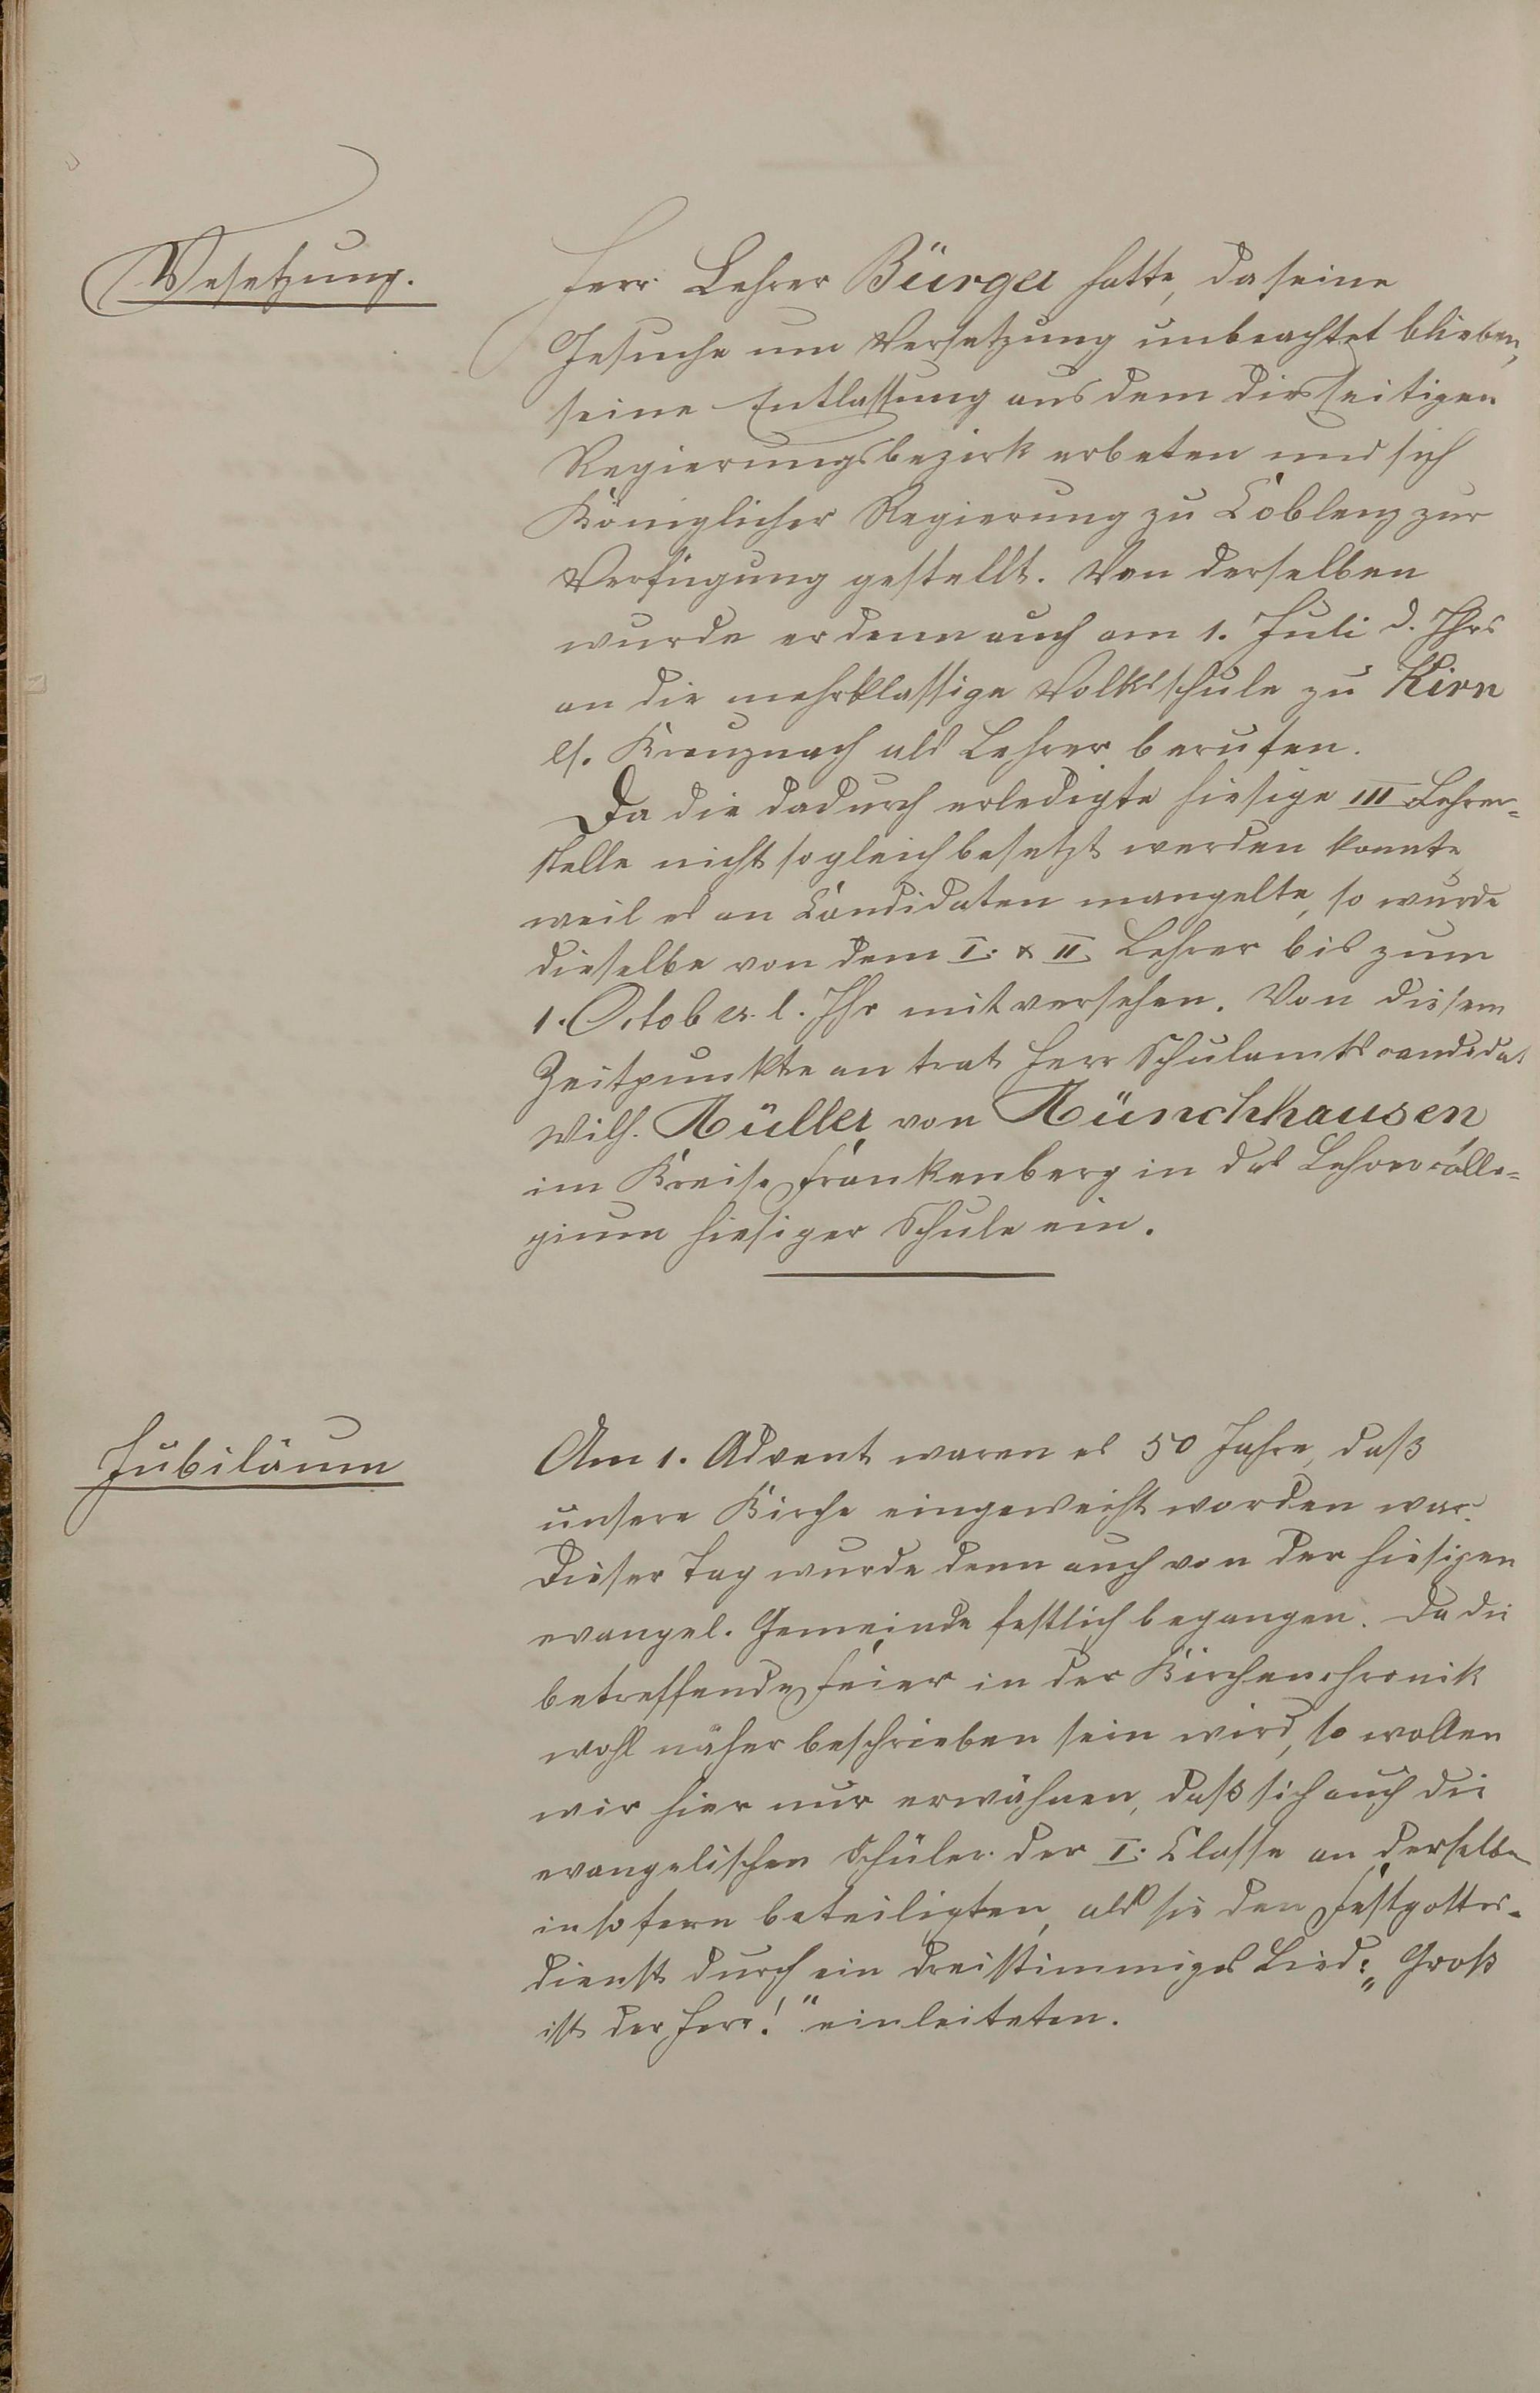 Vesetzung.
Herr Lehrer Bürger hatte, da seine
Gesuche um Versetzung unbeachtet blieben,
seine Entlassung aus dem diesseitigen
Regierungsbezirk erbeten und sich
Königlicher Regierung zu Coblenz zur
Verfügung gestellt. Von derselben
wurde er denn auch am 1. Juli d. Jhrs
an die mehrklassige Volksschule zu Kirn
Kreuznach als Lehrer berufen.
Da die dadurch erledigte hiesige III Lehrer-
stelle nicht sogleich besetzt werden konnte,
weil es an Candidaten mangelte, so wurde
dieselbe von dem I. & II. Lehrer bis zum
1. October l. Jhr mitversehen. Von diesem
Zeitpunkte an trat Herr Schulamtscandidat
Wilh. Müller von Münchhausen
im Kreise Frankenberg in das Lehrercolle-
gium hiesiger Schule ein.
Jubiläum
Am 1. Advent waren es 50 Jahre, daß
unsere Kirche eingeweiht worden war.
Dieser Tag wurde denn auch von der hiesigen
evangel. Gemeinde festlich begangen. Da die
betreffende Feier in der Kirchenchronik
wohl näher beschrieben sein wird, so wollen
wir hier nur erwähnen, daß sich auch die
evangelischen Schüler der I. Classe an derselben
insofern beteiligten, als sie den Festgottes-
dienst durch ein dreistimmiges Lied: „Groß
ist der Herr!“ einleiteten.